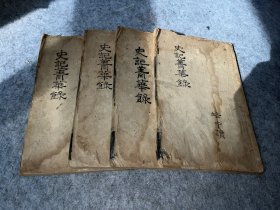 史記菁華錄
史記菁華錄
史記菁華錄
史記菁華錄